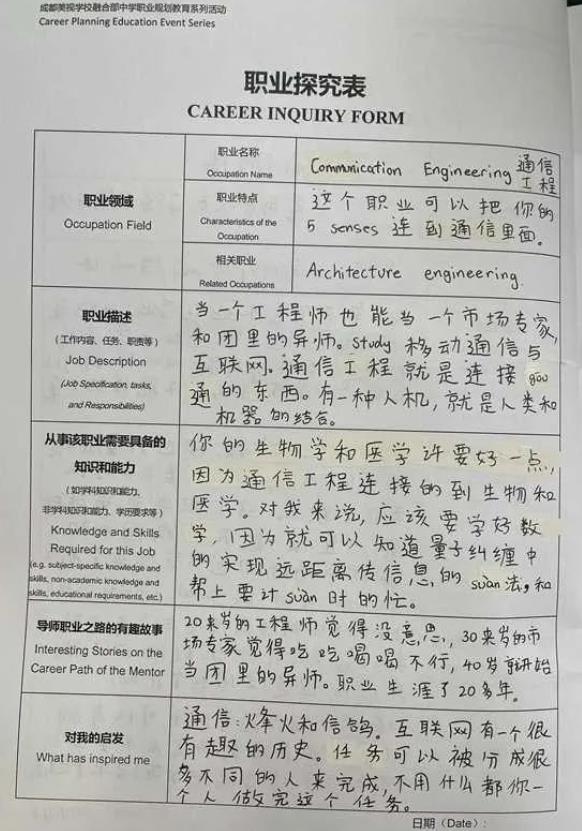 成都美视学校融合部中学职业规划教育系列活动
Career Planning Education Event Series
职业探究表
CAREER INQUIRY FORM
职业领域
Occupation Field
职业名称
Occupation Name
Communication Engineering 通信
工程
职业特点
Characteristics of the
Occupation
这个职业可以把你的
5 senses 连到通信里面。
相关职业
Related Occupations
Architecture engineering.
职业描述
(工作内容、任务、职责等)
Job Description
(Job Specification, tasks,
and Responsibilities)
当一个工程师也能当一个市场专家,
和团里的导师。study 移动通信与
互联网。通信工程就是连接 gou
通的东西。有一种人机,就是人类和
机器的结合。
从事该职业需要具备的
知识和能力
(如学科知识和能力、
非学科知识和能力、学历要求等)
Knowledge and Skills
Required for this Job
(e.g. subject-specific knowledge and
skills, non-academic knowledge and
skills, educational requirements, etc.)
你的生物学和医学许要好一点,
因为通信工程连接的到生物和
医学。对我来说,应该要学好数
学,因为就可以知道量子纠缠中
的实现远距离传信息的 suàn 法,和
帮上要计 suàn 时的忙。
导师职业之路的有趣故事
Interesting Stories on the
Career Path of the Mentor
20来岁的工程师觉得没意思,30来岁的市
场专家觉得吃吃喝喝不行,40岁就开始
当团里的导师。职业生涯了20多年。
对我的启发
What has inspired me
通信:烽火和信鸽。互联网有一个很
有趣的历史。任务可以被分成很
多不同的人来完成,不用什么都你一
个人做完这个任务。
日期(Date):